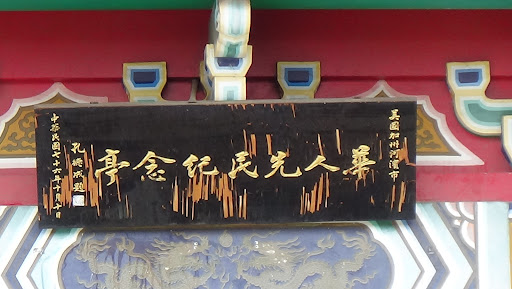 美國加州河濱市
華人先民紀念亭
孔德成題
中華民國七十六年十月十日